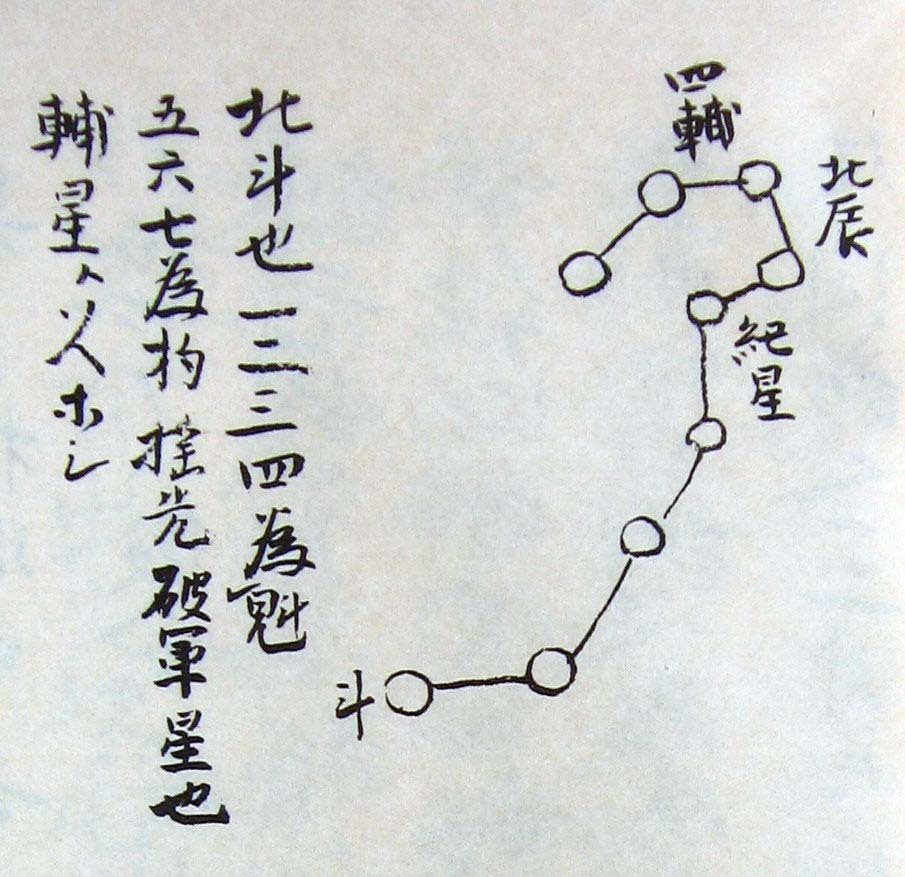 四輔
北辰
紀星
斗
北斗也一二三四為魁
五六七為杓 揺光 破軍星也
輔星